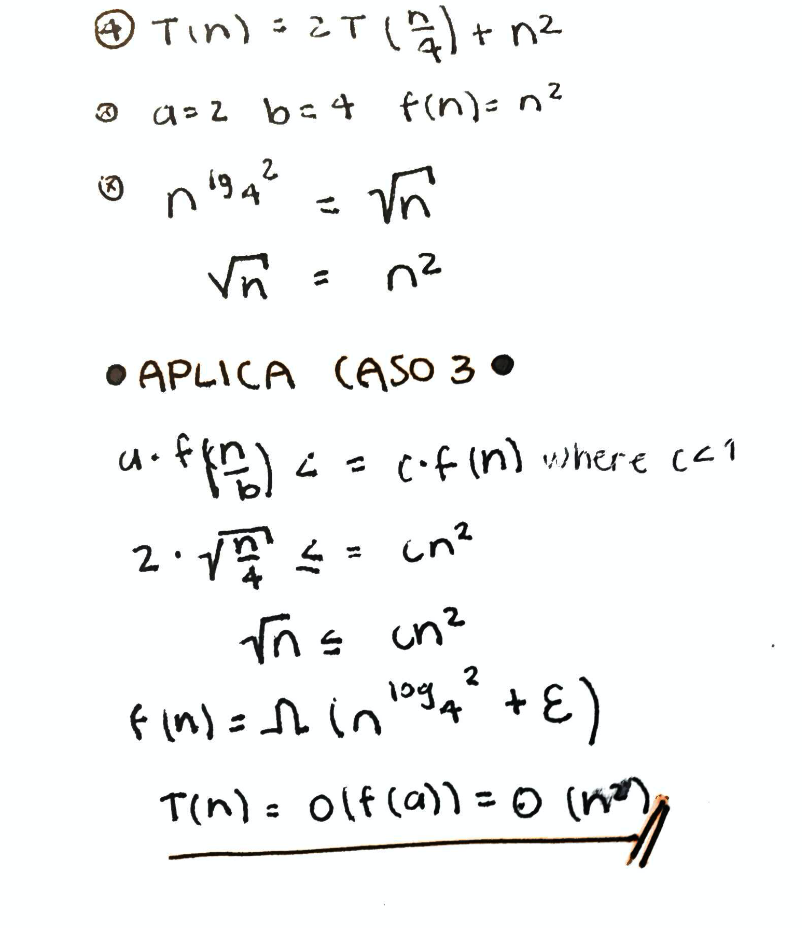 ④ T(n) = 2T(n/4) + n²
ⓧ a=2 b=4 f(n)= n²
ⓧ n^lg₄2 = √n
√n = n²
• APLICA CASO 3 •
a·f(n/b) < = c·f(n) where c<1
2·√(n/4) ≤ = cn²
√n ≤ cn²
f(n) = Ω(n^log₄2 + ε)
T(n) = O(f(a)) = Θ(n²)